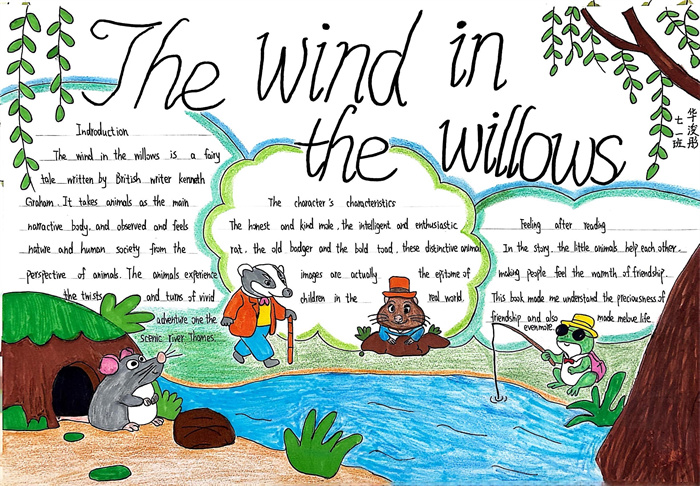 The wind in
the willows
华浚彤
七一班
Indroduction
The wind in the willows is a fairy
tale written by British writer kenneth
Graham. It takes animals as the main
narrative body, and observed and feels
nature and human society from the
perspective of animals. The animals experience
the twists and turns of vivid
adventure one the
scenic river Thames.
The character's characteristics
The honest and kind mole, the intelligent and enthusiastic
rat, the old badger and the bold toad, these distinctive animal
images are actually the epitome of
children in the real world.
Feeling after reading
In the story, the little animals help each other,
making people feel the warmth of friendship.
This book made me understand the preciousness of
friendship and also made me love life
evenmore.